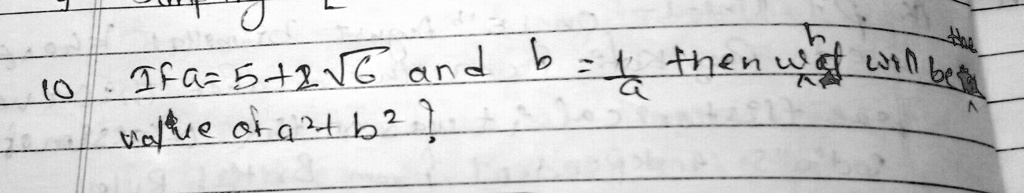 10 If a = 5+2√6 and b = 1/a then what will be the
value of a²+b²?